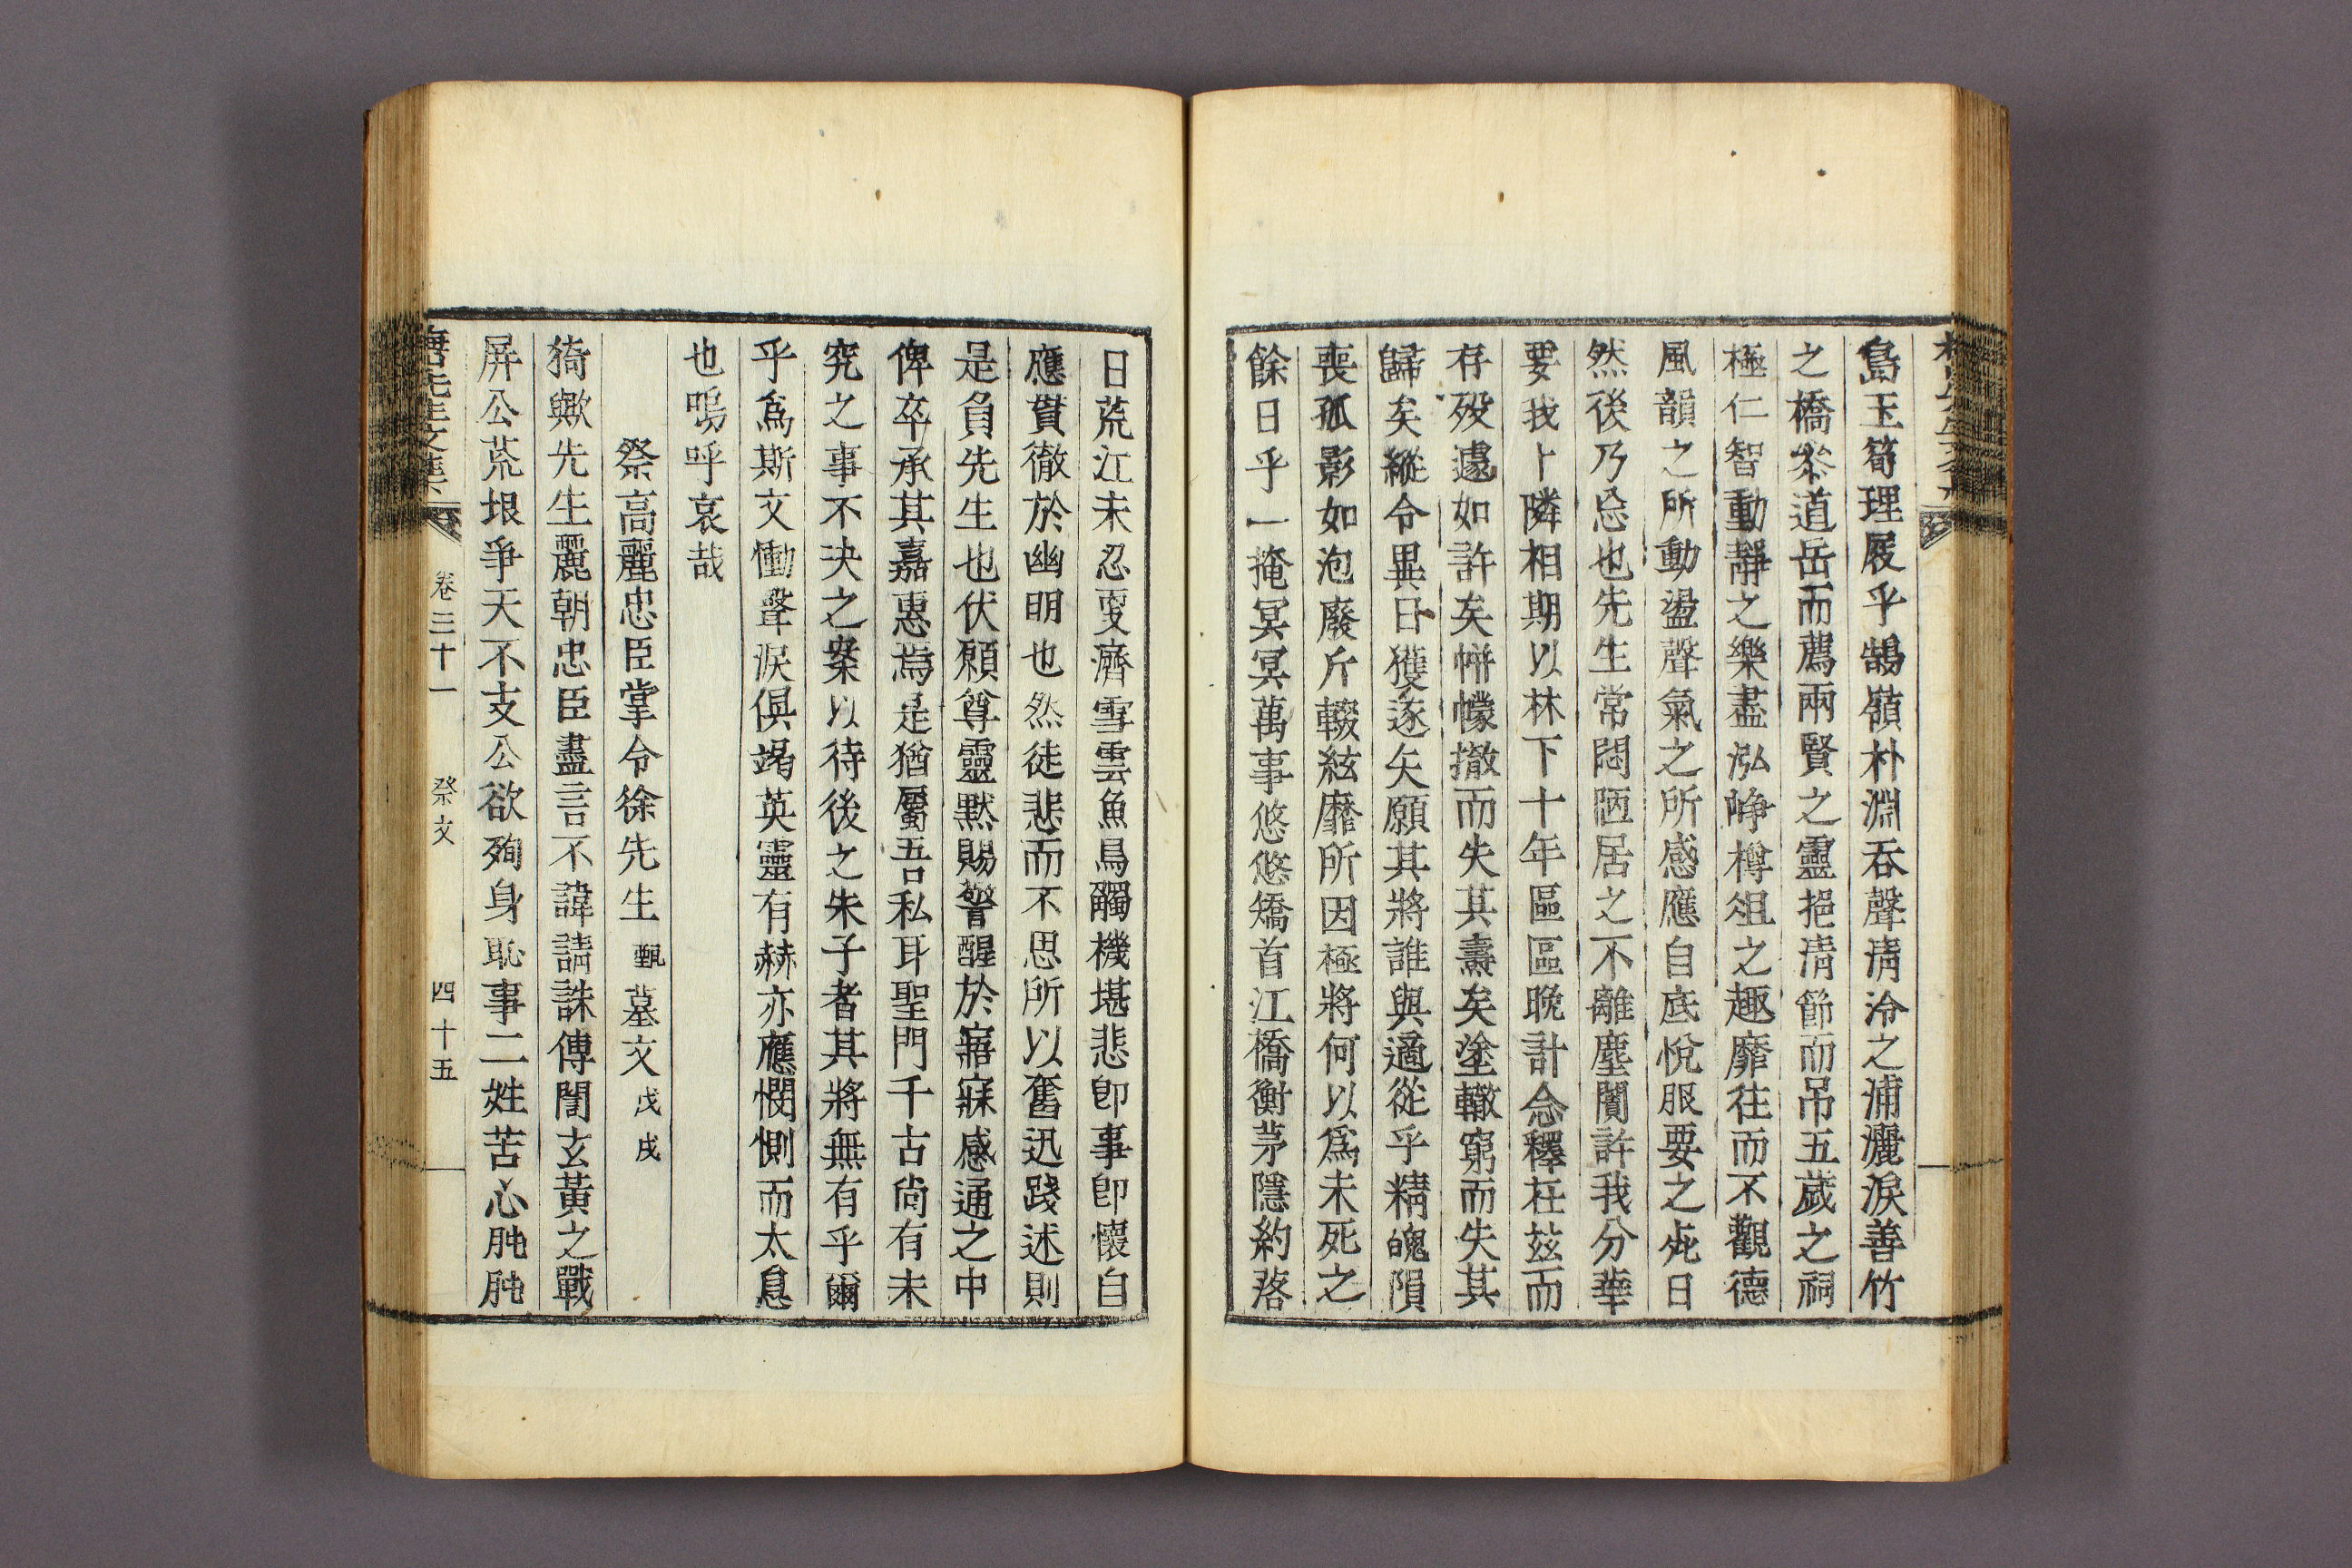 島玉筍理屐乎鵠嶺朴淵吞聲淸泠之浦灑淚善竹
之橋叅道岳而薦兩賢之靈挹淸節而吊五葳之祠
極仁智動靜之樂盡泓崢樽俎之趣靡往而不觀德
風韻之所動盪聲氣之所感應自底悅服要之死日
然後乃忘也先生常悶陋居之不離塵闠許我分華
要我卜隣相期以林下十年區區晩計念釋在玆而
存歿遽如許矣帡幪撤而失其壽矣塗轍窮而失其
歸矣縱令異日獲逐矢願其將誰與適從乎精魄隕
喪孤影如泡廢斤輟絃靡所因極將何以爲未死之
餘日乎一掩冥冥萬事悠悠矯首江橋衡茅隱約落
日荒江未忍更濟雪雲魚鳥觸機堪悲卽事卽懷自
應貫徹於幽明也然徒悲而不思所以奮迅踐述則
是負先生也伏願尊靈默賜警醒於寤寐感通之中
俾卒承其嘉惠焉是猶屬吾私耳聖門千古尙有未
究之事不决之案以待後之朱子者其將無有乎爾
乎爲斯文慟聲淚俱竭英靈有赫亦應憫惻而太息
也嗚呼哀哉
祭高麗忠臣掌令徐先生甄墓文戊戌
猗歟先生麗朝忠臣盡言不諱請誅傅誾玄黃之戰
屛公荒垠爭天不支公欲殉身恥事二姓苦心肫肫
先生文集 卷三十一 祭文 四十五